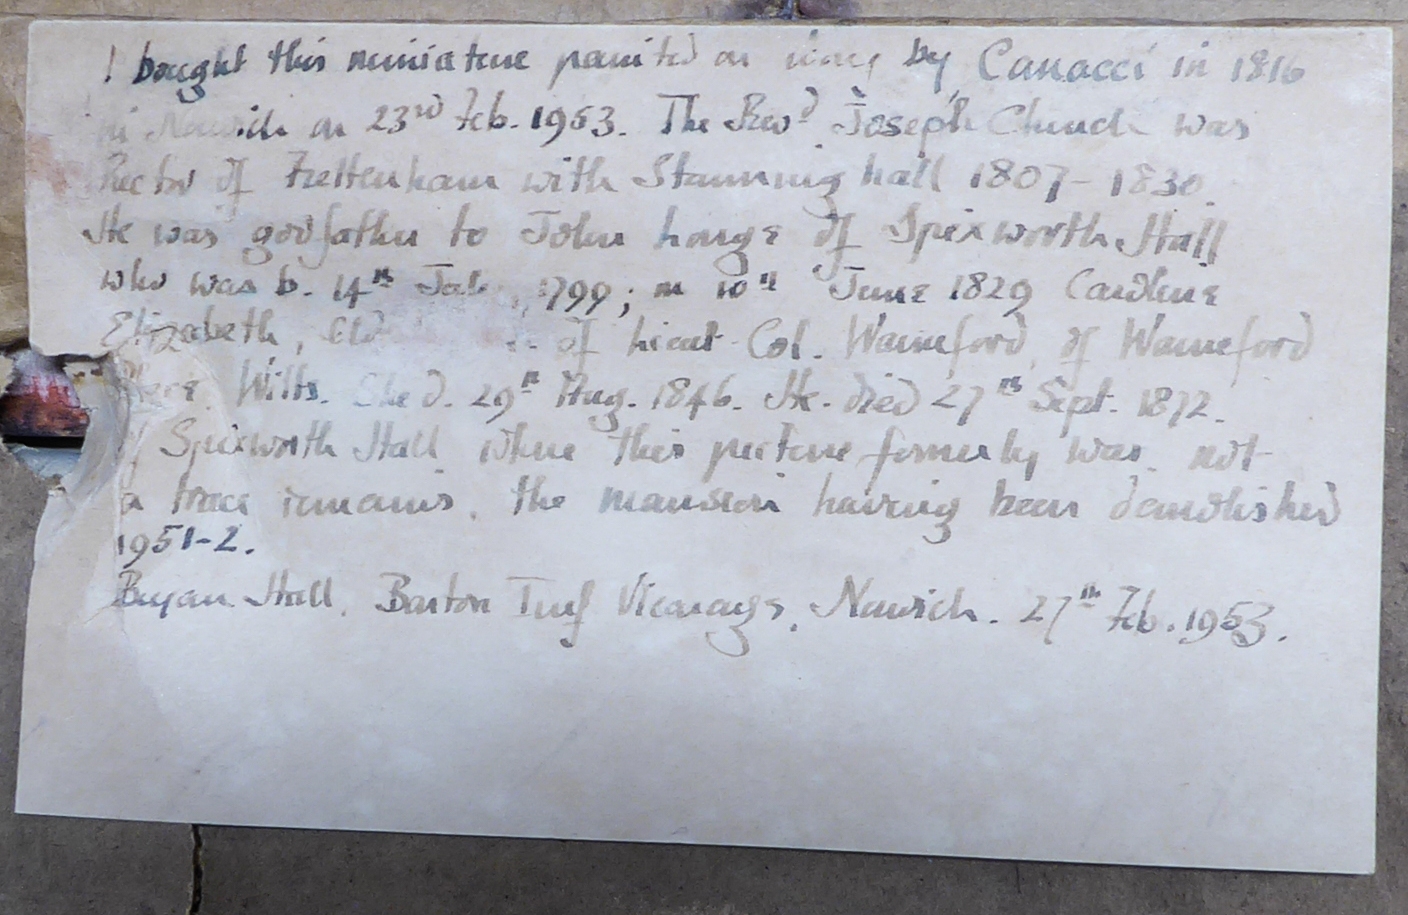 I bought this miniature painted on ivory by Canacci in 1816
in Norwich on 23rd Feb. 1953. The Revd. Joseph Church was
Rector of Frettenham with Stanninghall 1807-1830.
He was godfather to John Longe of Spixworth Hall
who was b. 14th 1799; m 10th June 1829 Caroline
Elizabeth, of Lieut-Col. Warneford, of Warneford
Place, Wilts. She d. 29th Aug. 1846. He died 27th Sept. 1872.
Of Spixworth Hall, where this picture formerly was, not
a trace remains, the mansion having been demolished
1951-2.
Bryan Hall, Barton Turf Vicarage, Norwich. 27th Feb. 1953.